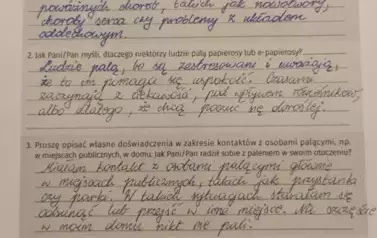 poważnych chorób, takich jak nowotwory,
choroby serca czy problemy z układem
oddechowym.
2. Jak Pani/Pan myśli, dlaczego niektórzy ludzie palą papierosy lub e-papierosy?
Ludzie palą, bo są zestresowani i uważają,
że to im pomaga się uspokoić. Czasami
zaczynają z ciekawości, pod wpływem rówieśników,
albo dlatego, że chcą poczuć się doroślej.
3. Proszę opisać własne doświadczenia w zakresie kontaktów z osobami palącymi, np.
w miejscach publicznych, w domu. Jak Pani/Pan radził sobie z paleniem w swoim otoczeniu?
Miałam kontakt z osobami palącymi głównie
w miejscach publicznych, takich jak przystanki
czy parki. W takich sytuacjach starałam się
odsunąć lub przejść w inne miejsce. Na szczęście
w moim domu nikt nie pali.